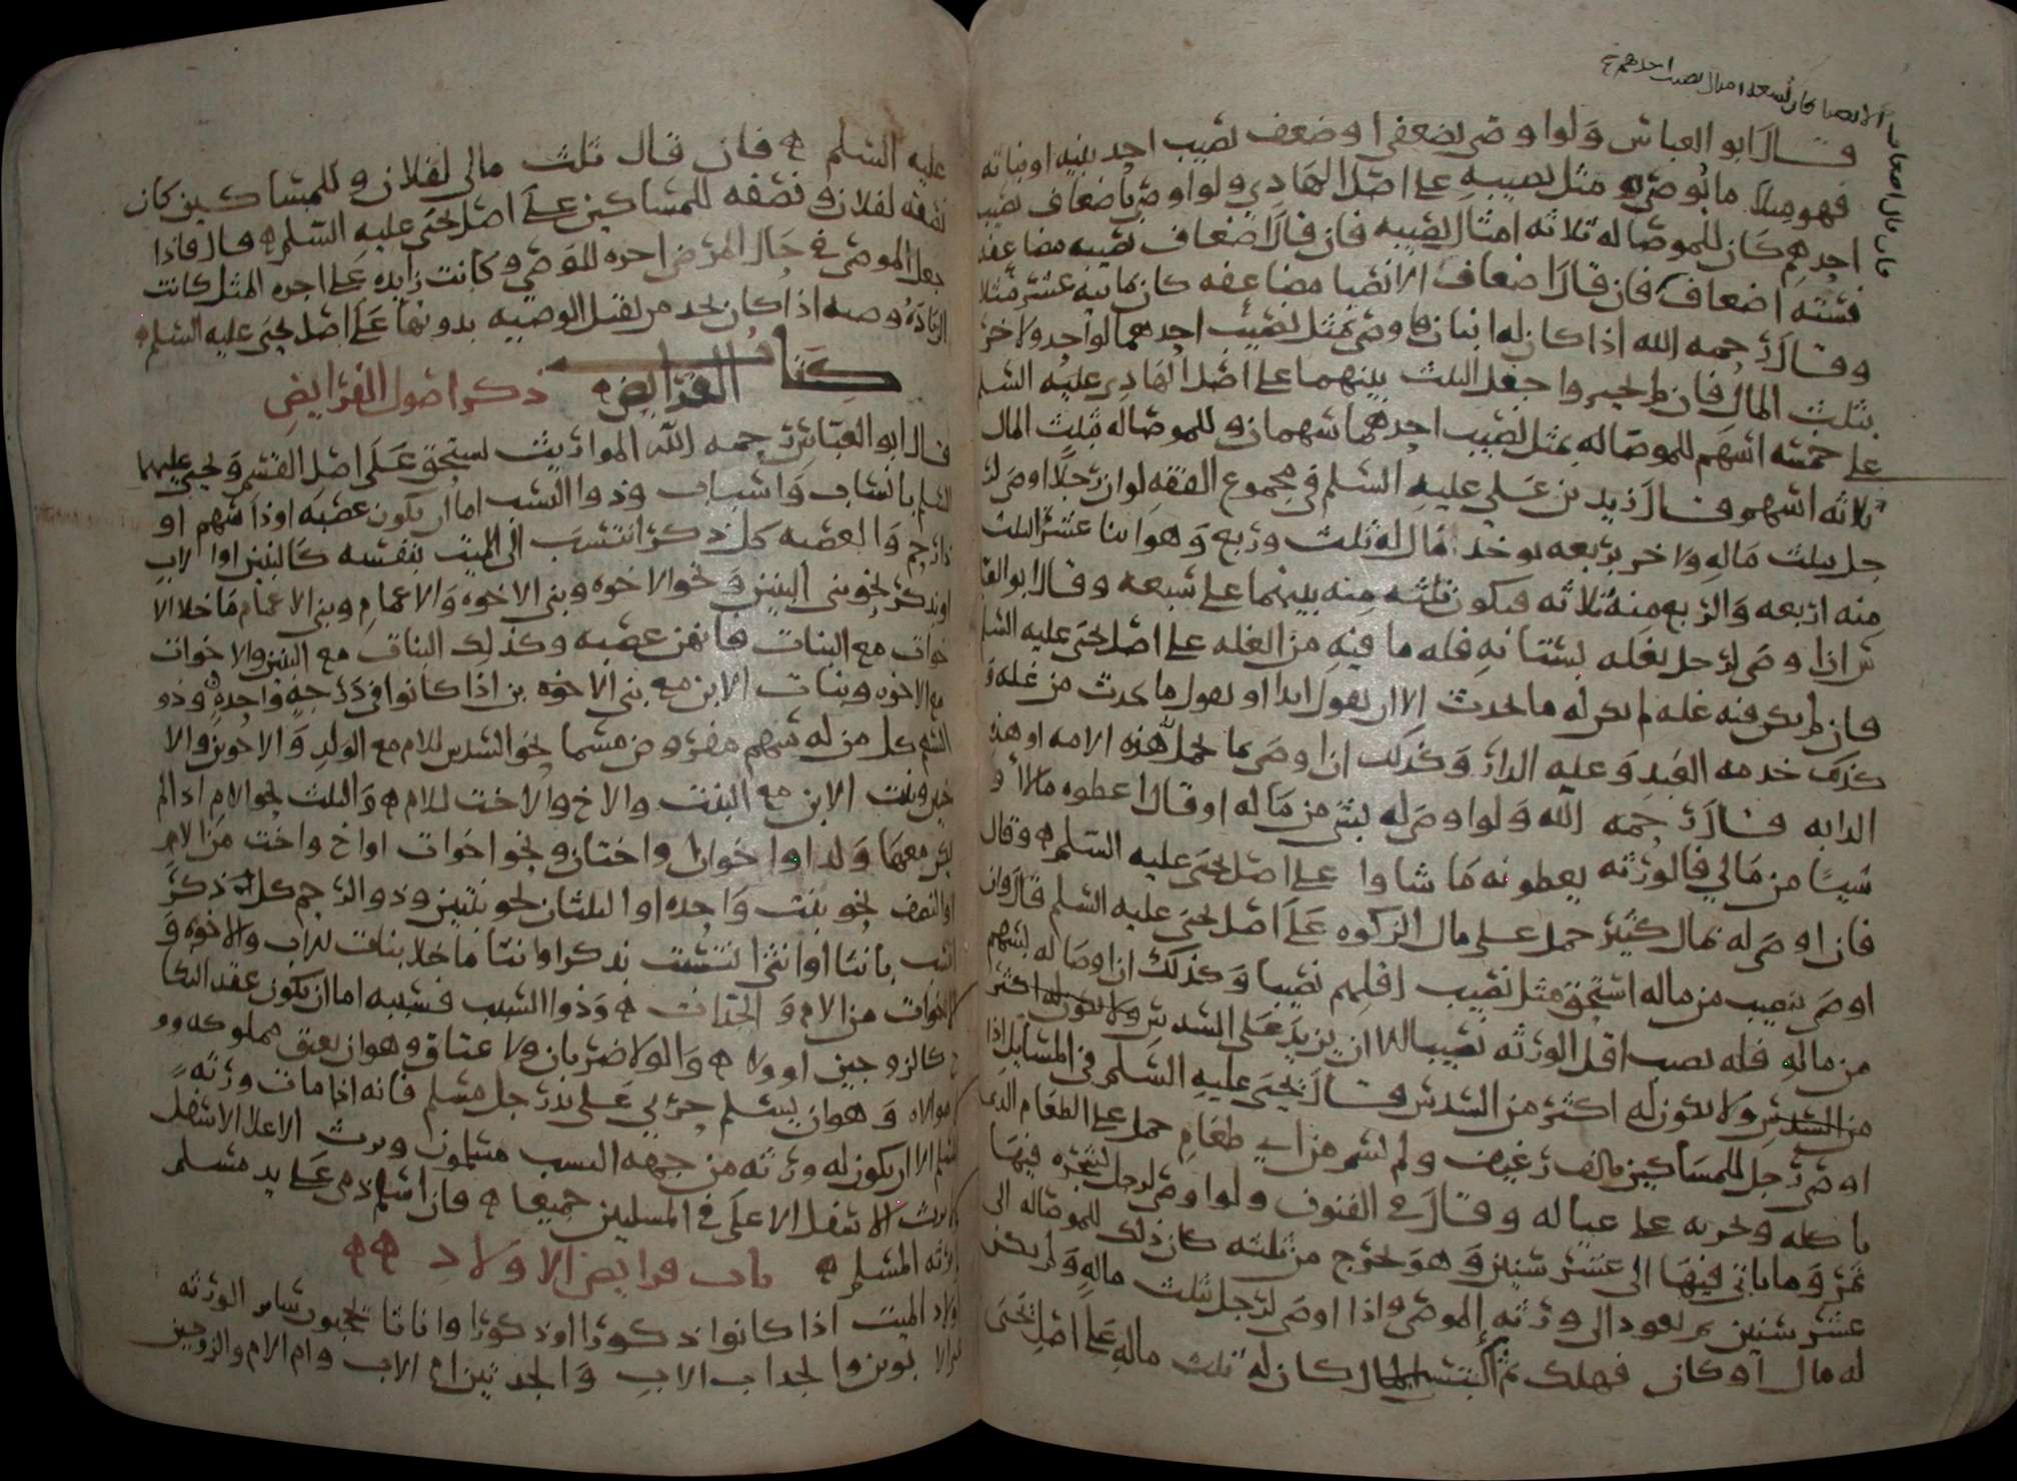 الانصبا كان تسعة امثال نصيب احدهم
فان قال اضعاف
قال ابو العباس ولو اوصى بضعفي او ضعف نصيب احد بنيه او بناته
فهو مثلا ما يوصى به مثل نصيبه على اصل الهادي ولو اوصى باضعاف نصيب
احدهم كان للموصا له ثلاثه امثال نصيبه فان قال اضعاف نصيبه مضاعفه
فسته اضعاف فان قال اضعاف الانصبا مضاعفه كان ثمانيه عشر مثلا
وقال رحمه الله اذا كان له ابنان فاوصى بمثل نصيب احدهما لواحد ولاخر
بثلث المال فان لم يجيزوا جعل الثلث بينهما على اصل الهادي عليه السلم
على خمسه اسهم للموصا له بمثل نصيب احدهما سهمان وللموصا له بثلث المال
ثلاثه اسهم وقال زيد بن علي عليه السلم في مجموع الفقه لو ان رجلا اوصى لر
جل بثلث ماله ولاخر بربعه يوخذ مال له ثلث وربع وهو اثنا عشر الثلث
منه اربعه والربع منه ثلاثه فيكون ثلثه منه بينهما على سبعه وقال ابو العبا
س اذا اوصى لرجل بغله بستانه فله ما فيه من الغله على اصل يحيى عليه السلم
فان لم يكن فيه غله لم يكن له ما يحدث الا ان يقول ابدا او يقول ما يحدث من غله و
كذلك خدمه العبد وغله الدار وكذلك اذا اوصى بما تحمل هذه الامه او هذه
الدابه قال رحمه الله ولو اوصى له بشي من ماله او قال اعطوه مالا او
شيئا من مالي فالورثه يعطونه ما شاوا على اصل يحيى عليه السلم وقال
فان اوصى له بمال كثير حمل على مال الزكوه على اصل يحيى عليه السلم قال وان
اوصى بنصيب من ماله استحق مثل نصيب اقلهم نصيبا وكذلك اذا اوصا له بسهم
من ماله فله نصيب اقل الورثه نصيبا الا ان يزيد على السدس ولا يكون له اكثر
من السدس ولا يكون له اكثر من السدس وقال يحيى عليه السلم في المسايل اذا
اوصى رجل للمساكين بالف رغيف ولم يسم من اي طعام حمل على الطعام الذي
ياكله ويجريه على عياله وقال في الفنون ولو اوصى لرجل بشجره فيها
ثمر وما ياتي فيها الى عشر سنين وهو يخرج من ثلثه كان ذلك للموصا له الى
عشر سنين ثم يعود الى ورثه الموصي واذا اوصى لرجل بثلث ماله ولم يكن
له مال او كان فهلك ثم اكتسب المال كان له ثلث ماله على اصل يحيى
عليه السلم فان قال ثلث مالي لفلان وللمساكين كان
نصفه لفلان ونصفه للمساكين على اصل يحيى عليه السلم قال فاذا
جعل الموصي في حال المرض اجره للوصي وكانت زايده على اجره المثل كانت
الزياده وصيه اذا كان يجد من يقبل الوصيه بدونها على اصل يحيى عليه السلم
كتاب الفرايض ذكر اصول الفرايض
قال ابو العباس رحمه الله المواريث تستحق على اصل القسم ويحيى عليهما
السلم بانساب واسباب وذوا النسب اما ان يكون عصبه او ذا سهم او
ذا رحم والعصبه كل ذكر انتسب الى الميت بنفسه كالبنين او الاب
او بذكر نحو بني البنين ونحو الاخوه وبني الاخوه والاعمام وبني الاعمام ما خلا الا
خوات مع البنات فانهن عصبه وكذلك البنات مع البنين والاخوات
مع الاخوه وبنات الابن مع بني الابن اذا كانوا في درجه واحده وذو
السهم كل من له سهم مفروض مسما نحو السدس للام مع الولد والاخوين والا
ختين وبنت الابن مع البنت والاخ والاخت للام والثلث نحو الام اذا لم
يكن معهما ولد او اخوان او اختان ونحو اخوات او اخ واخت من الام
او النصف نحو بنت واحده او الثلثان نحو بنتين وذو الرحم كل ذكر
انتسب بانثا او انثى انتسبت بذكر او انثا ما خلا بنات للاب والاخوه و
الاخوات من الام والجدات وذوا السبب فسببه اما ان يكون عقد النكا
ح كالزوجين او ولا والولا ضربان ولا عتاق وهو ان يعتق مملوكه وو
لا موالاه وهو ان يسلم حربي على يد رجل مسلم فانه اذا مات ورثه
المسلم الا ان يكون له ورثه من جهه النسب مسلمون ويرث الاعلا الاسفل
ولا يرث الاسفل الاعلى في المسلمين جميعا فان اسلم ذمي على يد مسلم
ورثه المسلم باب فرايض الاولاد
اولاد الميت اذا كانوا ذكورا او ذكورا واناثا يحجبون ساير الورثه
الا الابوين والجد اب الاب والجدتين ام الاب وام الام والزوجين